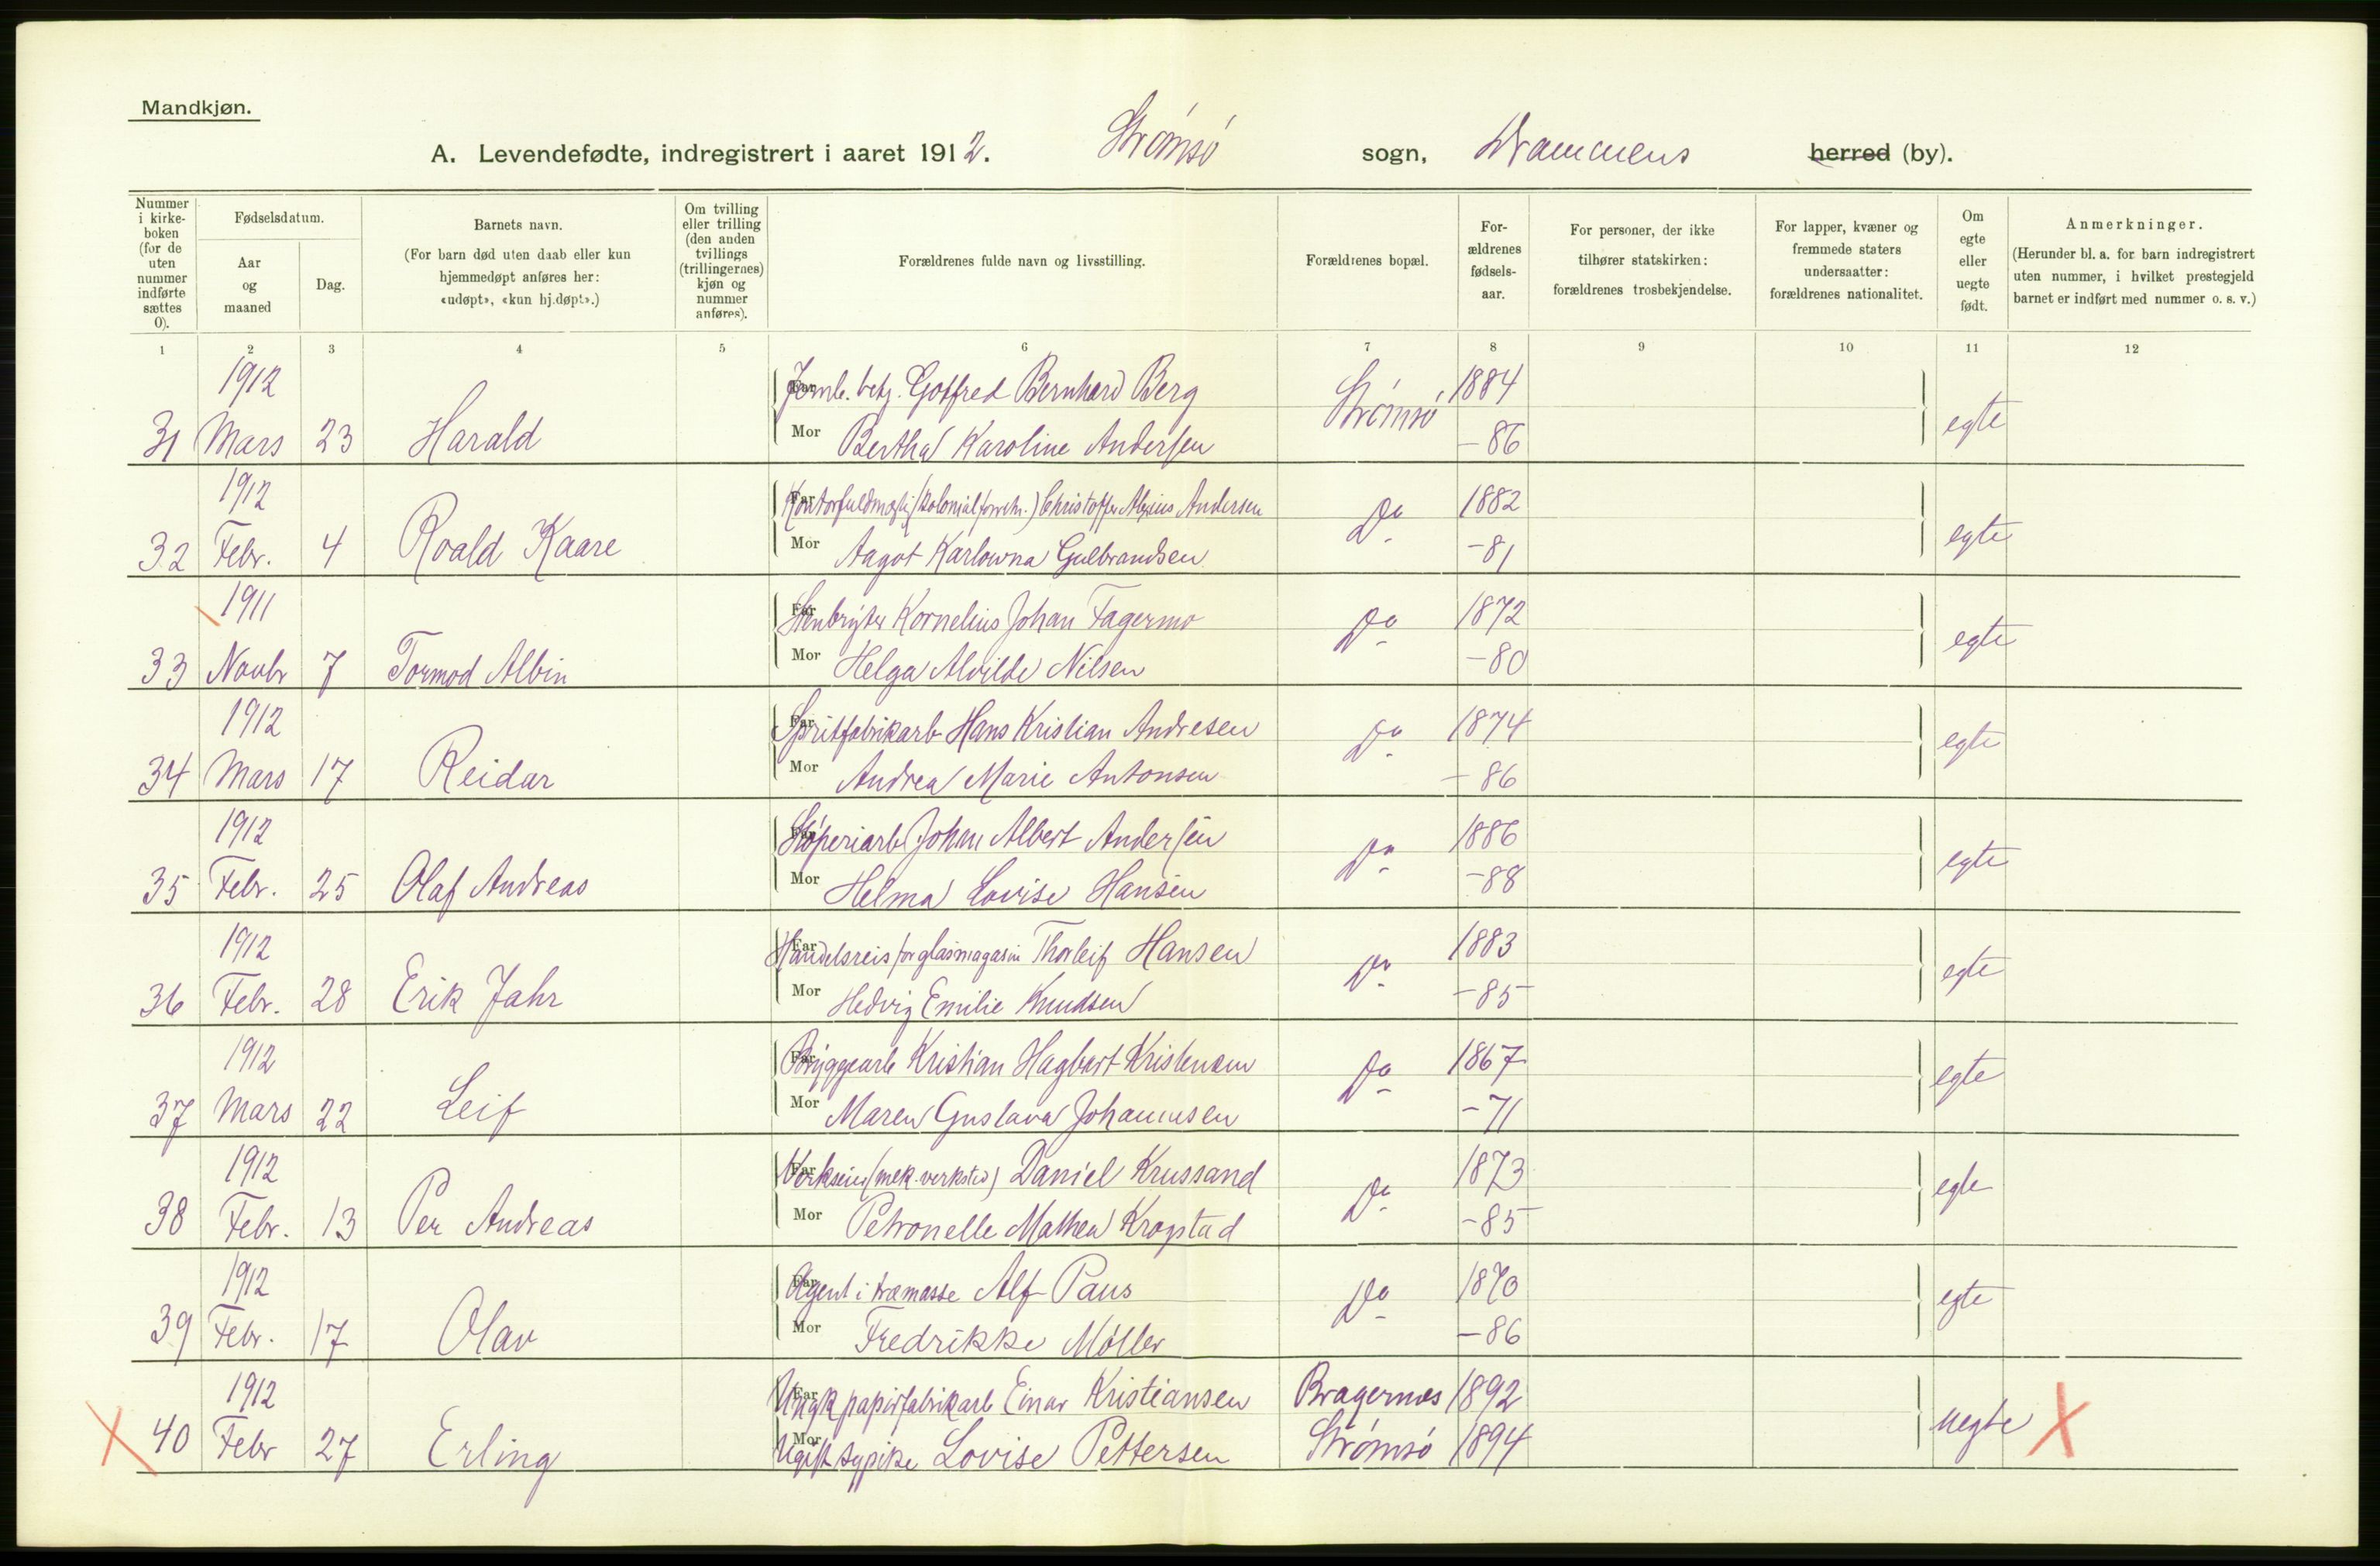 Mandkjøn.
A. Levendefødte, indregistrert i aaret 1912. Strømsø sogn, Drammens herred (by).
Nummer i kirke-boken (for de uten nummer indførte sættes 0).
Fødselsdatum.
Aar og maaned
Dag.
Barnets navn.
(For barn død uten daab eller kun hjemmedøpt anføres her: «udøpt», «kun hj.døpt».)
Om tvilling eller trilling (den anden tvillings (trillingernes) kjøn og nummer anføres).
Forældrenes fulde navn og livsstilling.
Forældrenes bopæl.
For-ældrenes fødsels-aar.
For personer, der ikke tilhører statskirken: forældrenes trosbekjendelse.
For lapper, kvæner og fremmede staters undersaatter: forældrenes nationalitet.
Om egte eller uegte født.
Anmerkninger.
(Herunder bl. a. for barn indregistrert uten nummer, i hvilket prestegjeld barnet er indført med nummer o. s. v.)
1 2 3 4 5 6 7 8 9 10 11 12
1912 Far Jernb. betj. Gotfred Bernhard Berg Strømsø 1884
31 Mars 23 Harald Mor Bertha Karoline Andersen -86 egte
1912 Far Kontorfuldmægtig (kolonialforretn.) Christoffer Andersen Do 1882
32 Febr. 4 Roald Kaare Mor Aagot Karlowna Gulbrandsen -81 egte
1911 Far Stenbryter Kornelius Johan Fagermo Do 1872
33 Novbr 7 Tormod Albin Mor Helga Alvilde Nilsen -80 egte
1912 Far Spritfabrikarb Hans Kristian Andresen Do 1874
34 Mars 17 Reidar Mor Andrea Marie Antonsen -86 egte
1912 Far Støperiarb Johan Albert Andersen Do 1886
35 Febr. 25 Olaf Andreas Mor Helma Lovise Hansen -88 egte
1912 Far Handelsreis for glasmagasin Thorleif Hansen Do 1883
36 Febr. 28 Erik Jahr Mor Hedvig Emilie Knudsen -85 egte
1912 Far Bryggearb Kristian Hagbart Kristensen Do 1867
37 Mars 22 Leif Mor Maren Gustava Johannesen -71 egte
1912 Far (mek. verksted) Daniel Krussand Do 1873
38 Febr. 13 Per Andreas Mor Petronelle Mathea Krogstad -85 egte
1912 Far Agent i træmasse Alf Paus Do 1870
39 Febr. 17 Olav Mor Fredrikke Møller -86 egte
1912 Far Ungk papirfabrikarb Einar Kristiansen Bragernes 1892
X 40 Febr 27 Erling Mor Ugift sypike Lovise Pettersen Strømsø 1894 uegte X